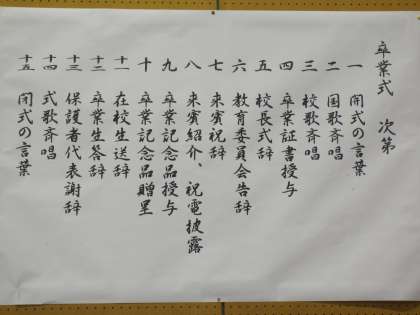 卒業式 次第
一 開式の言葉
二 国歌斉唱
三 校歌斉唱
四 卒業証書授与
五 校長式辞
六 教育委員会告辞
七 来賓祝辞
八 来賓紹介、祝電披露
九 卒業記念品授与
十 卒業記念品贈呈
十一 在校生送辞
十二 卒業生答辞
十三 保護者代表謝辞
十四 式歌斉唱
十五 閉式の言葉